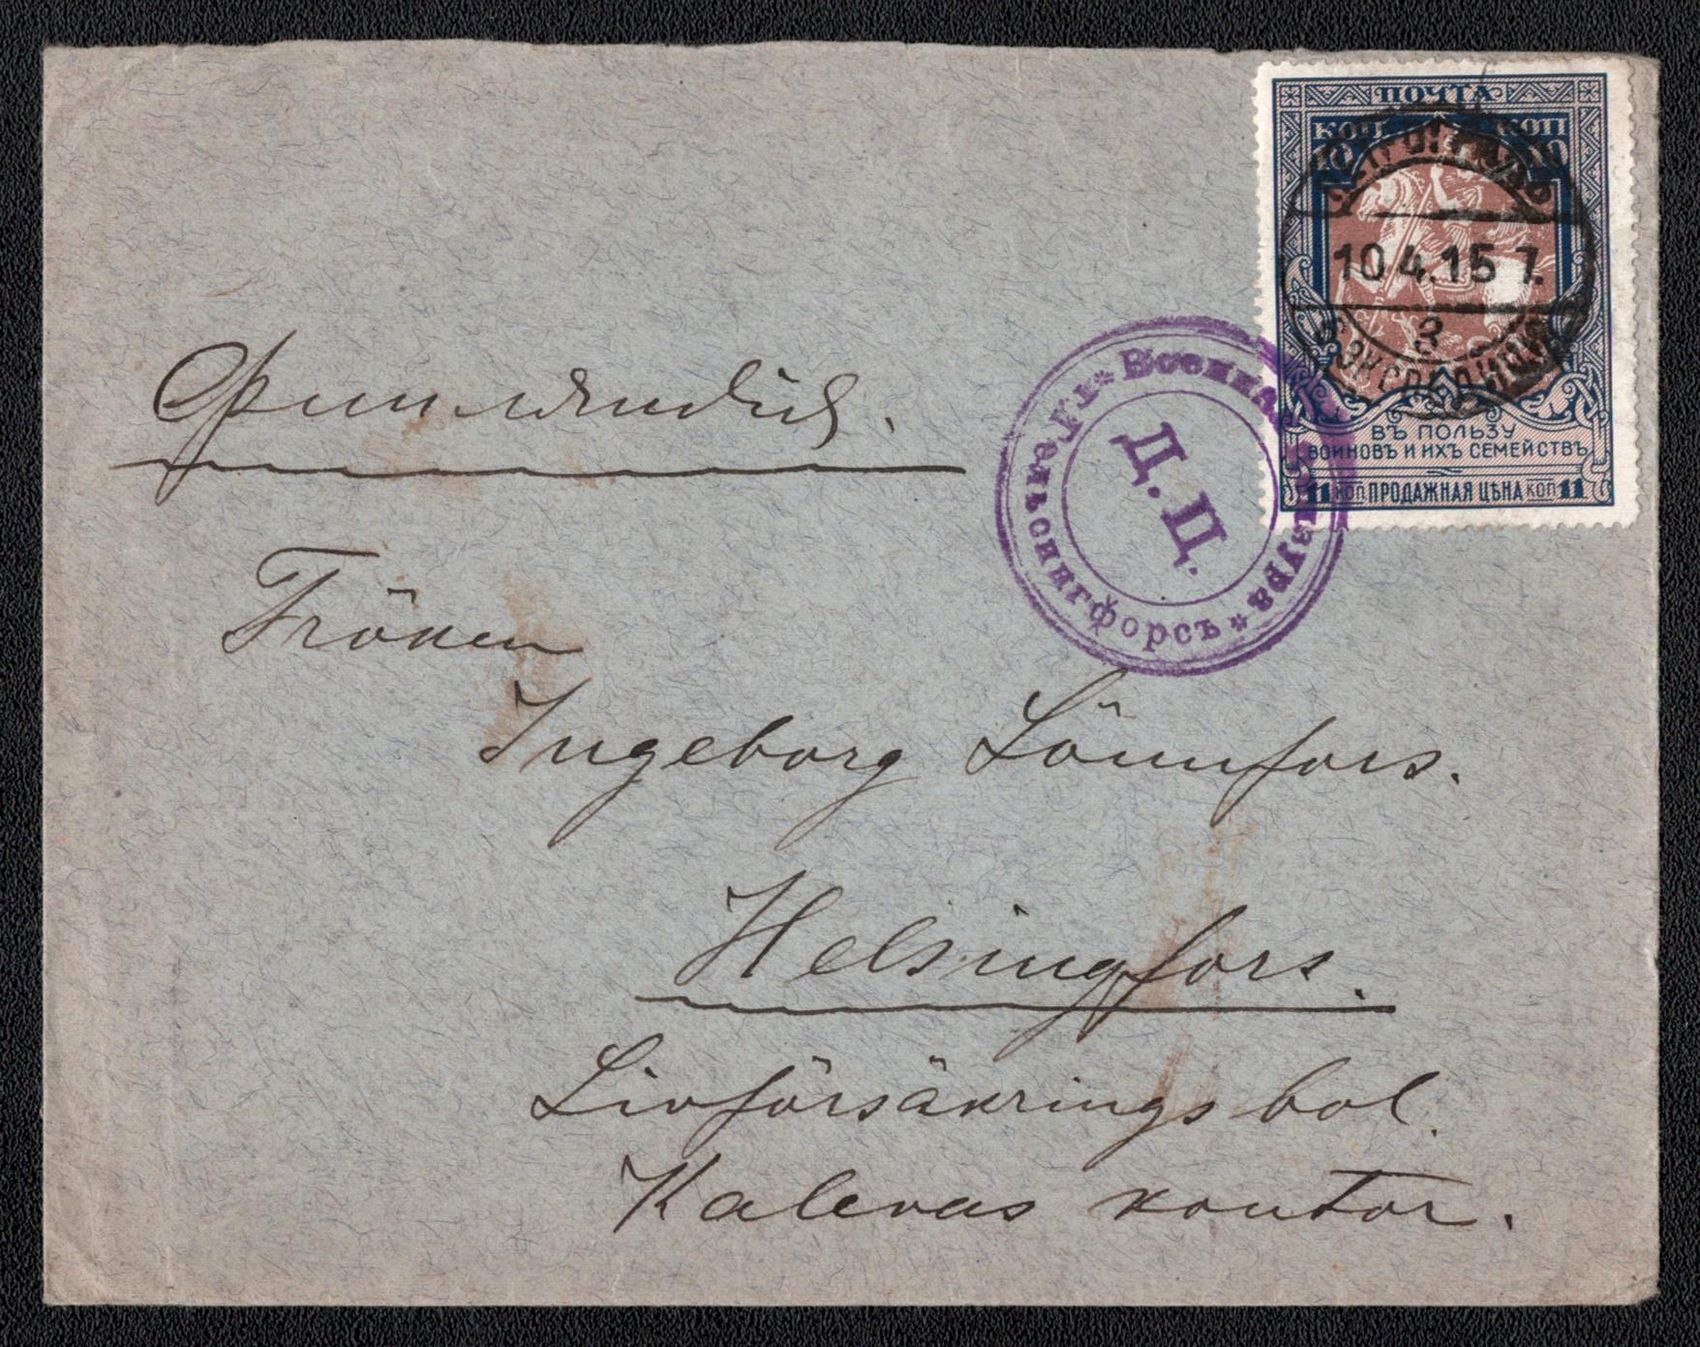 ПОЧТА
КОП КОП
10 10
ПЕТРОГРАДЪ
10.4.15 7.
3
6 ЭКСПЕДИЦІЯ
ВЪ ПОЛЬЗУ
ВОИНОВЪ И ИХЪ СЕМЕЙСТВЪ
11 КОП ПРОДАЖНАЯ ЦѢНА КОП 11
* Военная цензура * Гельсингфорсъ
Д. Ц.
Финляндія.
Fröken
Ingeborg Lönnfors.
Helsingfors.
Livförsäkrings bol.
Kalevas kontor.